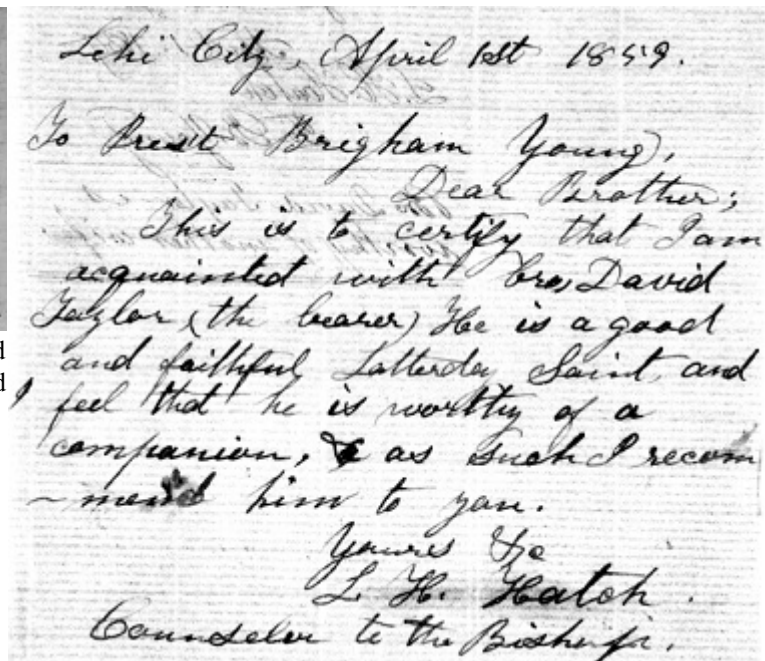 Lehi City, April 1st 1859.
To Prest Brigham Young,
Dear Brother;
This is to certify that I am
acquainted with bro, David
Taylor, (the bearer) He is a good
and faithful Latterday Saint, and
I feel that he is worthy of a
companion, & as such I recom
- mend him to you.
Youres &c
L. H. Hatch.
Counselor to the Bishop.
d
d